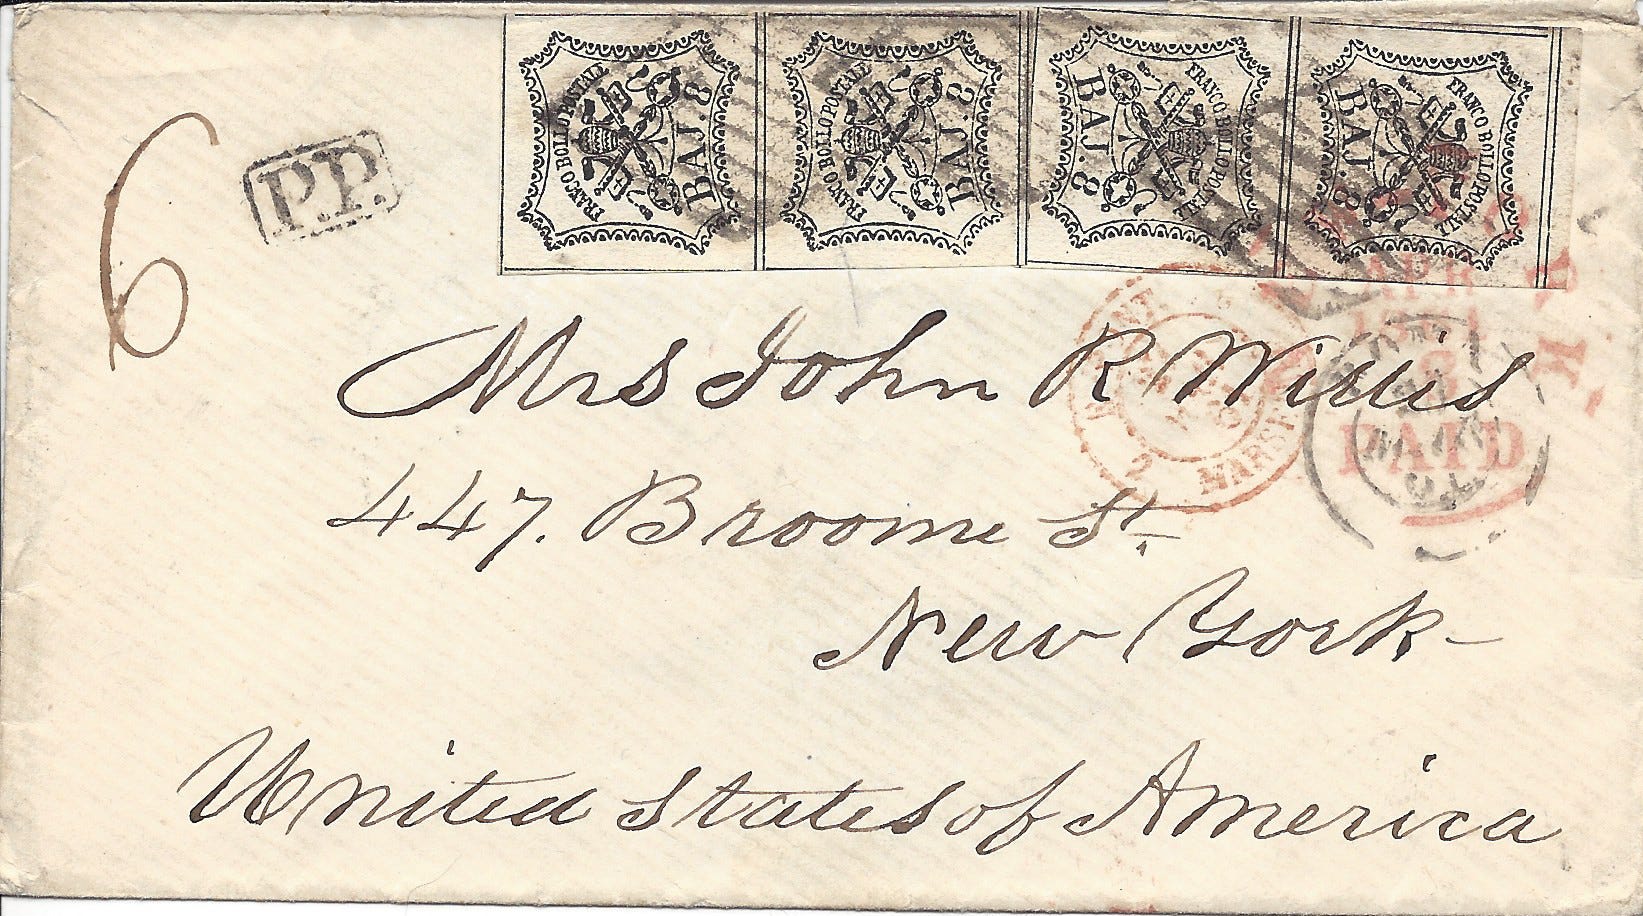 FRANCO BOLLO POSTALE
BAJ. 8
FRANCO BOLLO POSTALE
BAJ. 8
FRANCO BOLLO POSTALE
BAJ. 8
FRANCO BOLLO POSTALE
BAJ. 8
6
P.P.
PAID
Mrs John R Willis
447. Broome St.
New York
United States of America